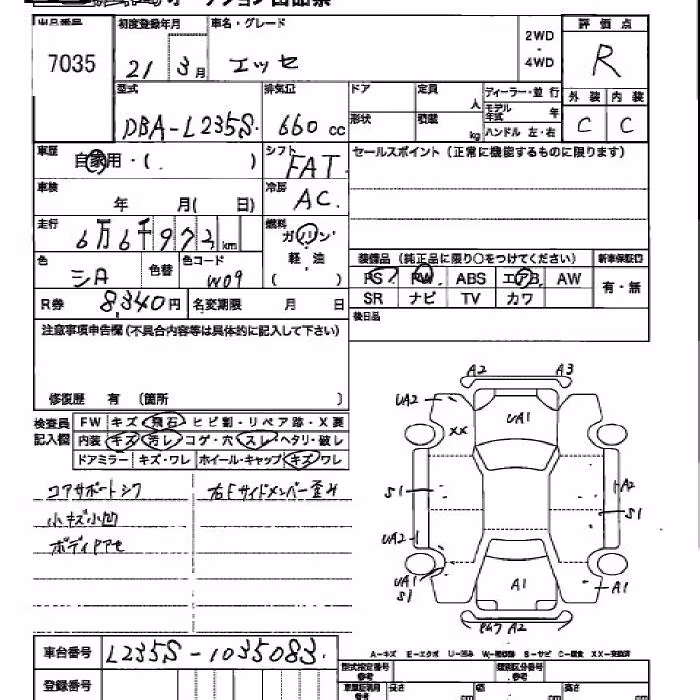 出品番号 初度登録年月 車名・グレード 2WD・4WD 評価点
7035 21 3月 エッセ R
型式 排気量 ドア 定員 人 ディーラー・並行 外装 内装
DBA-L235S 660cc 形状 積載 kg モデル年式 年 ハンドル 左・右 C C
車歴 自家用・( ) シフト FAT セールスポイント(正常に機能するものに限ります)
車検 年 月( 日) 冷房 AC
走行 6万6千972km 燃料 ガソリン・軽油
色 シロ 色替 色コード W09 ( )
装備品(純正品に限り○をつけてください) 新車保証書
PS PW ABS エアB AW 有・無
SR ナビ TV カワ
R券 8,340円 名変期限 月 日 後日品
注意事項申告欄(不具合内容等は具体的に記入して下さい)
修復歴 有 (箇所 )
検査員記入欄 FW キズ・飛石・ヒビ割・リペア跡・X要
内装 キズ・汚レ・コゲ・穴・スレ・ヘタリ・破レ
ドアミラー キズ・ワレ ホイール・キャップ キズ・ワレ
コアサポートシワ 右Fサイドメンバー歪み
小キズ小凹
ボディアセ
A2 A3
UA2 XX UA1
S1 A2
S1
UA2
UA1 A1 A1
S1
A2
A-キズ E-エクボ U-凹み W-補修跡 S-サビ C-腐食 XX-交換済
車台番号 L235S-1035083
型式指定番号 参考 類別区分番号 参考
登録番号 長さ cm 幅 cm 高さ cm